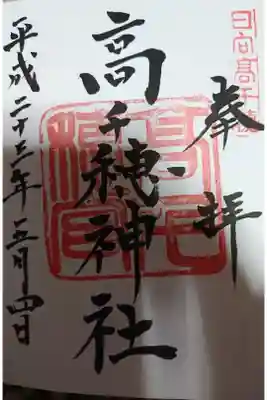 日向高千穂
奉拝
高千穂神社
平成二十三年五月四日